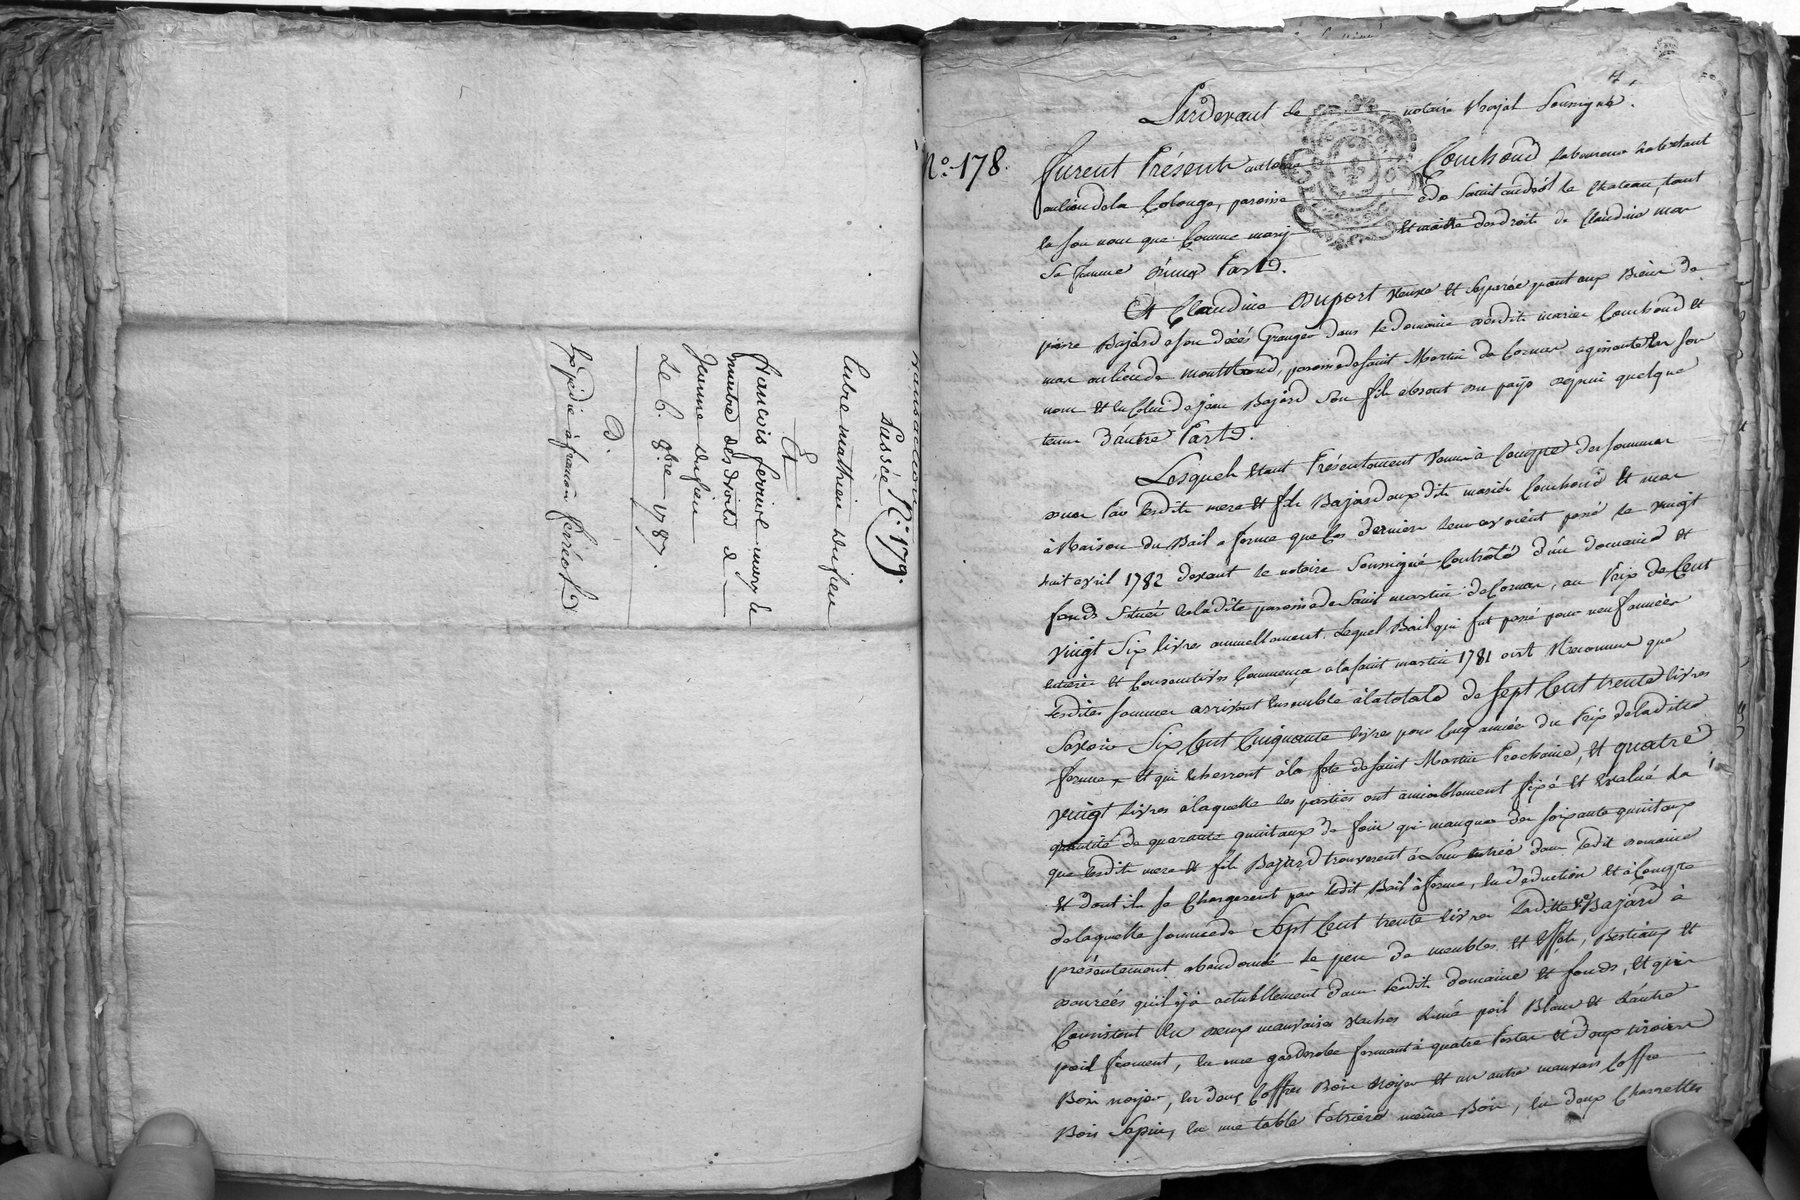 Transaction
Passée N.º 179.
Entre mathieu dufieu
Et
francois ferriol mary &
maitre des droits de
Jeanne dufieu
Le 6. 8bre 1787.
D.
Expédié à francois ferréol
Pardevant Le notaire Royal Soussigné.
N.º 178.
furent Présents antoine Couchoud Laboureur habitant
au lieu de la Colonge, paroisse de saint andéol le chateau, tant
en son nom que Comme mary et maitre des droits de Claudine mar
sa femme d'une Part.
Et Claudine Duport veuve et séparée quant aux Biens de
pierre Bajard son décés Granger dans le domaine desdits mariés Couchoud et
mar au lieu de montblond, paroisse de saint Martin de Cornas agissante en son
nom et en Celui de jean Bajard son fils absent du pays depuis quelque
tems d'autre Part.
Lesquels étant Présentement venus à Compte des sommes
dues Par lesdits mere et fils Bajard auxdits mariés Couchoud et mar
à Raison du Bail a ferme que Ces derniers leur avoient passé le vingt
huit avril 1782 devant le notaire Soussigné Controllé d'un domaine et
fonds Situés en ladite paroisse de saint martin de Cornas, au Prix de Cent
vingt Six livres annuellement, Lequel Bail qui fut passé pour neuf années
entieres et Consecutives Commença a la saint martin 1781 ont Reconnu que
lesdites sommes arrivent Ensemble à la totale de sept Cent trente livres
Savoir Six Cent Cinquante livres pour Cinq années du Prix de ladite
ferme, et qui echerront à la fete de saint Martin Prochaine, et quatre
vingt Livres à laquelle les parties ont amiablement fixé et Evalué la
quantité de quarante quintaux de foin qui manquent des soixante quintaux
que lesdits mere et fils Bajard trouverent à Leur entrée dans ledit domaine
et dont ils se Chargerent par ledit Bail à ferme, En déduction et à Compte
de laquelle somme de Sept Cent trente livres Ladite ve Bajard à
présentement abandonné le peu de meubles et Effets, Bestiaux et
denrées qu'il y a actuellement dans lesdits domaine et fonds, et qui
Consistent En deux mauvaises vaches L'une poil Blanc et L'autre
poil froment, En une garderobe fermant à quatre Portes et deux tiroirs
Bois noyer, En deux Coffres Bois noyer et un autre mauvais Coffre
Bois Sapin, En une table Petriere même Bois, En deux Charrettes